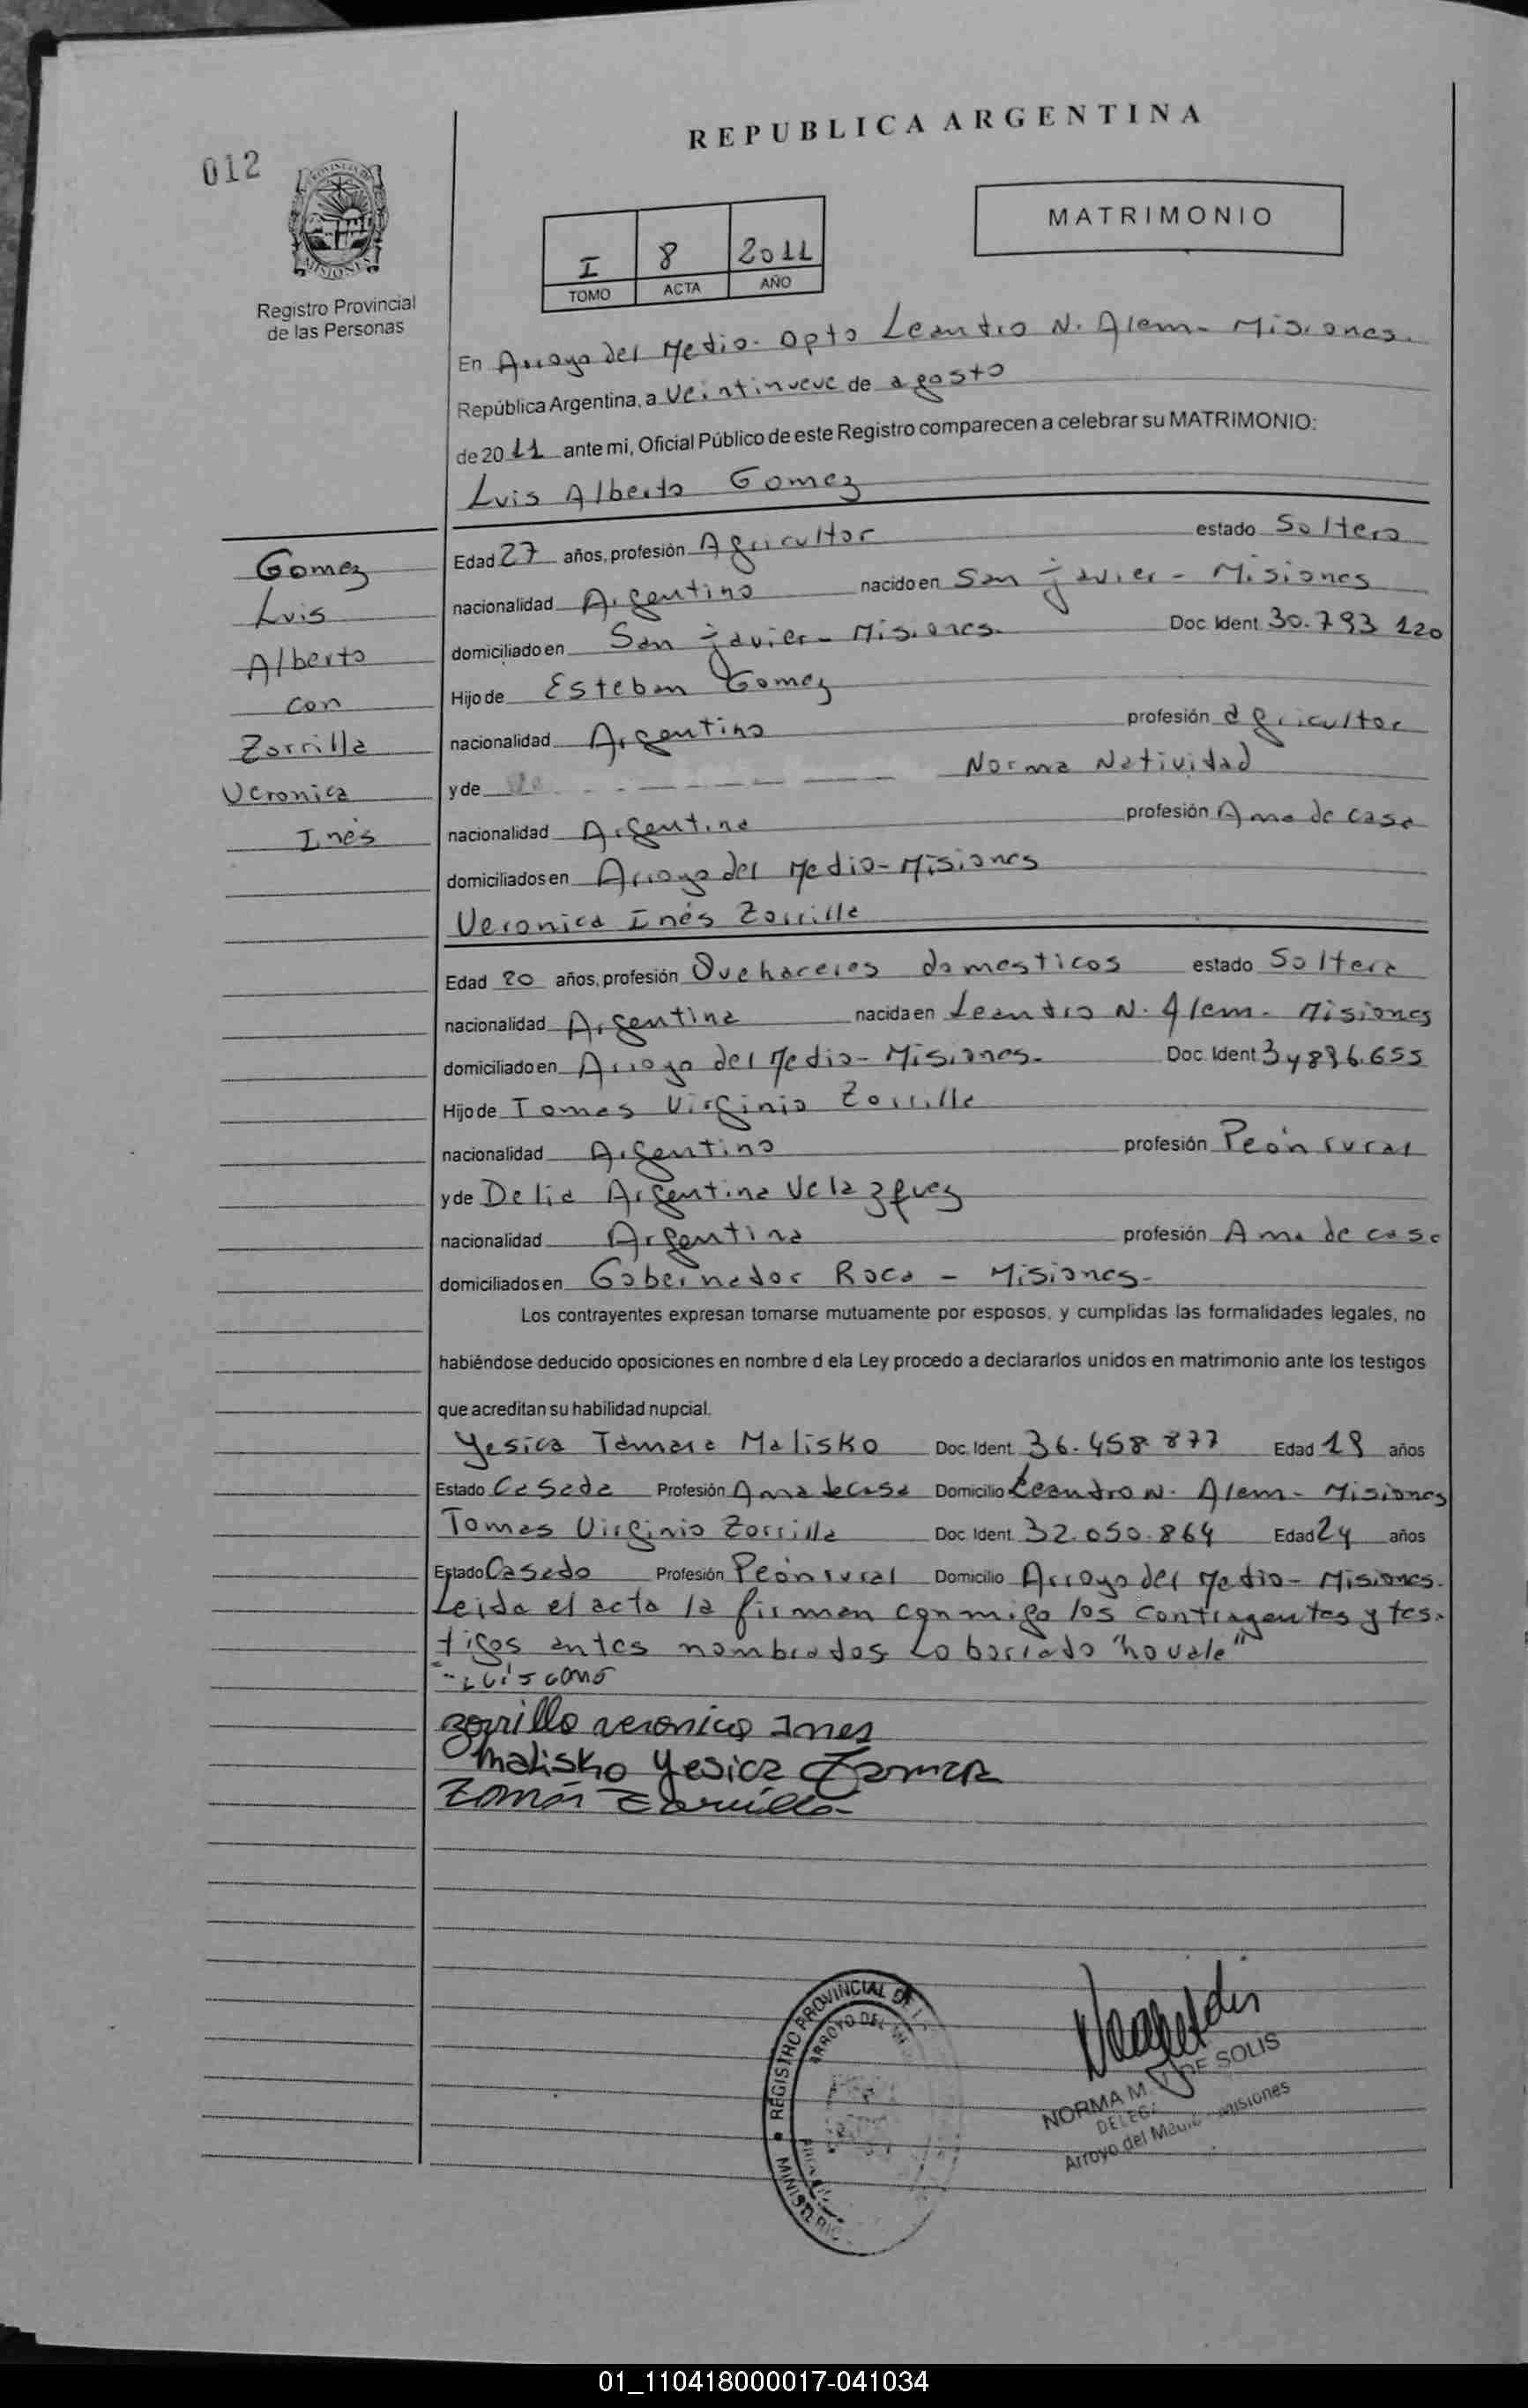 REPUBLICA ARGENTINA
012
MATRIMONIO
I 8 2011
TOMO ACTA AÑO
PROVINCIA DE
MISIONES
Registro Provincial
de las Personas
En Arroyo del Medio. Dpto Leandro N. Alem - Misiones.
República Argentina, a Veintinueve de agosto
de 20 11 ante mi, Oficial Público de este Registro comparecen a celebrar su MATRIMONIO:
Luis Alberto Gomez
Gomez
Luis
Alberto
con
Zorrilla
Veronica
Inés
Edad 27 años, profesión Agricultor estado Soltero
nacionalidad Argentino nacido en San javier - Misiones
domiciliado en San javier - Misiones. Doc. Ident. 30.793 120
Hijo de Esteban Gomez
nacionalidad Argentino profesión agricultor
y de Norma Natividad
nacionalidad Argentina profesión Ama de casa
domiciliados en Arroyo del Medio - Misiones
Veronica Inés Zorrilla
Edad 20 años, profesión Quehaceres domesticos estado Soltera
nacionalidad Argentina nacida en Leandro N. Alem - Misiones
domiciliado en Arroyo del Medio - Misiones. Doc. Ident. 34896.655
Hijo de Tomas Virginio Zorrilla
nacionalidad Argentino profesión Peón rural
y de Delia Argentina Velazquez
nacionalidad Argentina profesión Ama de casa
domiciliados en Gobernador Roca - Misiones -
Los contrayentes expresan tomarse mutuamente por esposos, y cumplidas las formalidades legales, no
habiéndose deducido oposiciones en nombre d ela Ley procedo a declararlos unidos en matrimonio ante los testigos
que acreditan su habilidad nupcial.
Yesica Tamara Malisko Doc. Ident. 36.458.877 Edad 19 años
Estado Casada Profesión Ama de casa Domicilio Leandro N. Alem - Misiones
Tomas Virginio Zorrilla Doc. Ident. 32.050.864 Edad 24 años
Estado Casado Profesión Peón rural Domicilio Arroyo del Medio - Misiones.
Leida el acta la firman conmigo los contrayentes y tes-
tigos antes nombrados Lo borrado "no vale"
Luis Gome
zorrilla veronica Ines
Malisko Yesica Tamara
Tomás Zorrilla
REGISTRO PROVINCIAL DE
ARROYO DEL
MINISTERIO
NORMA M. DE SOLIS
Arroyo del Medio - Misiones
01_110418000017-041034